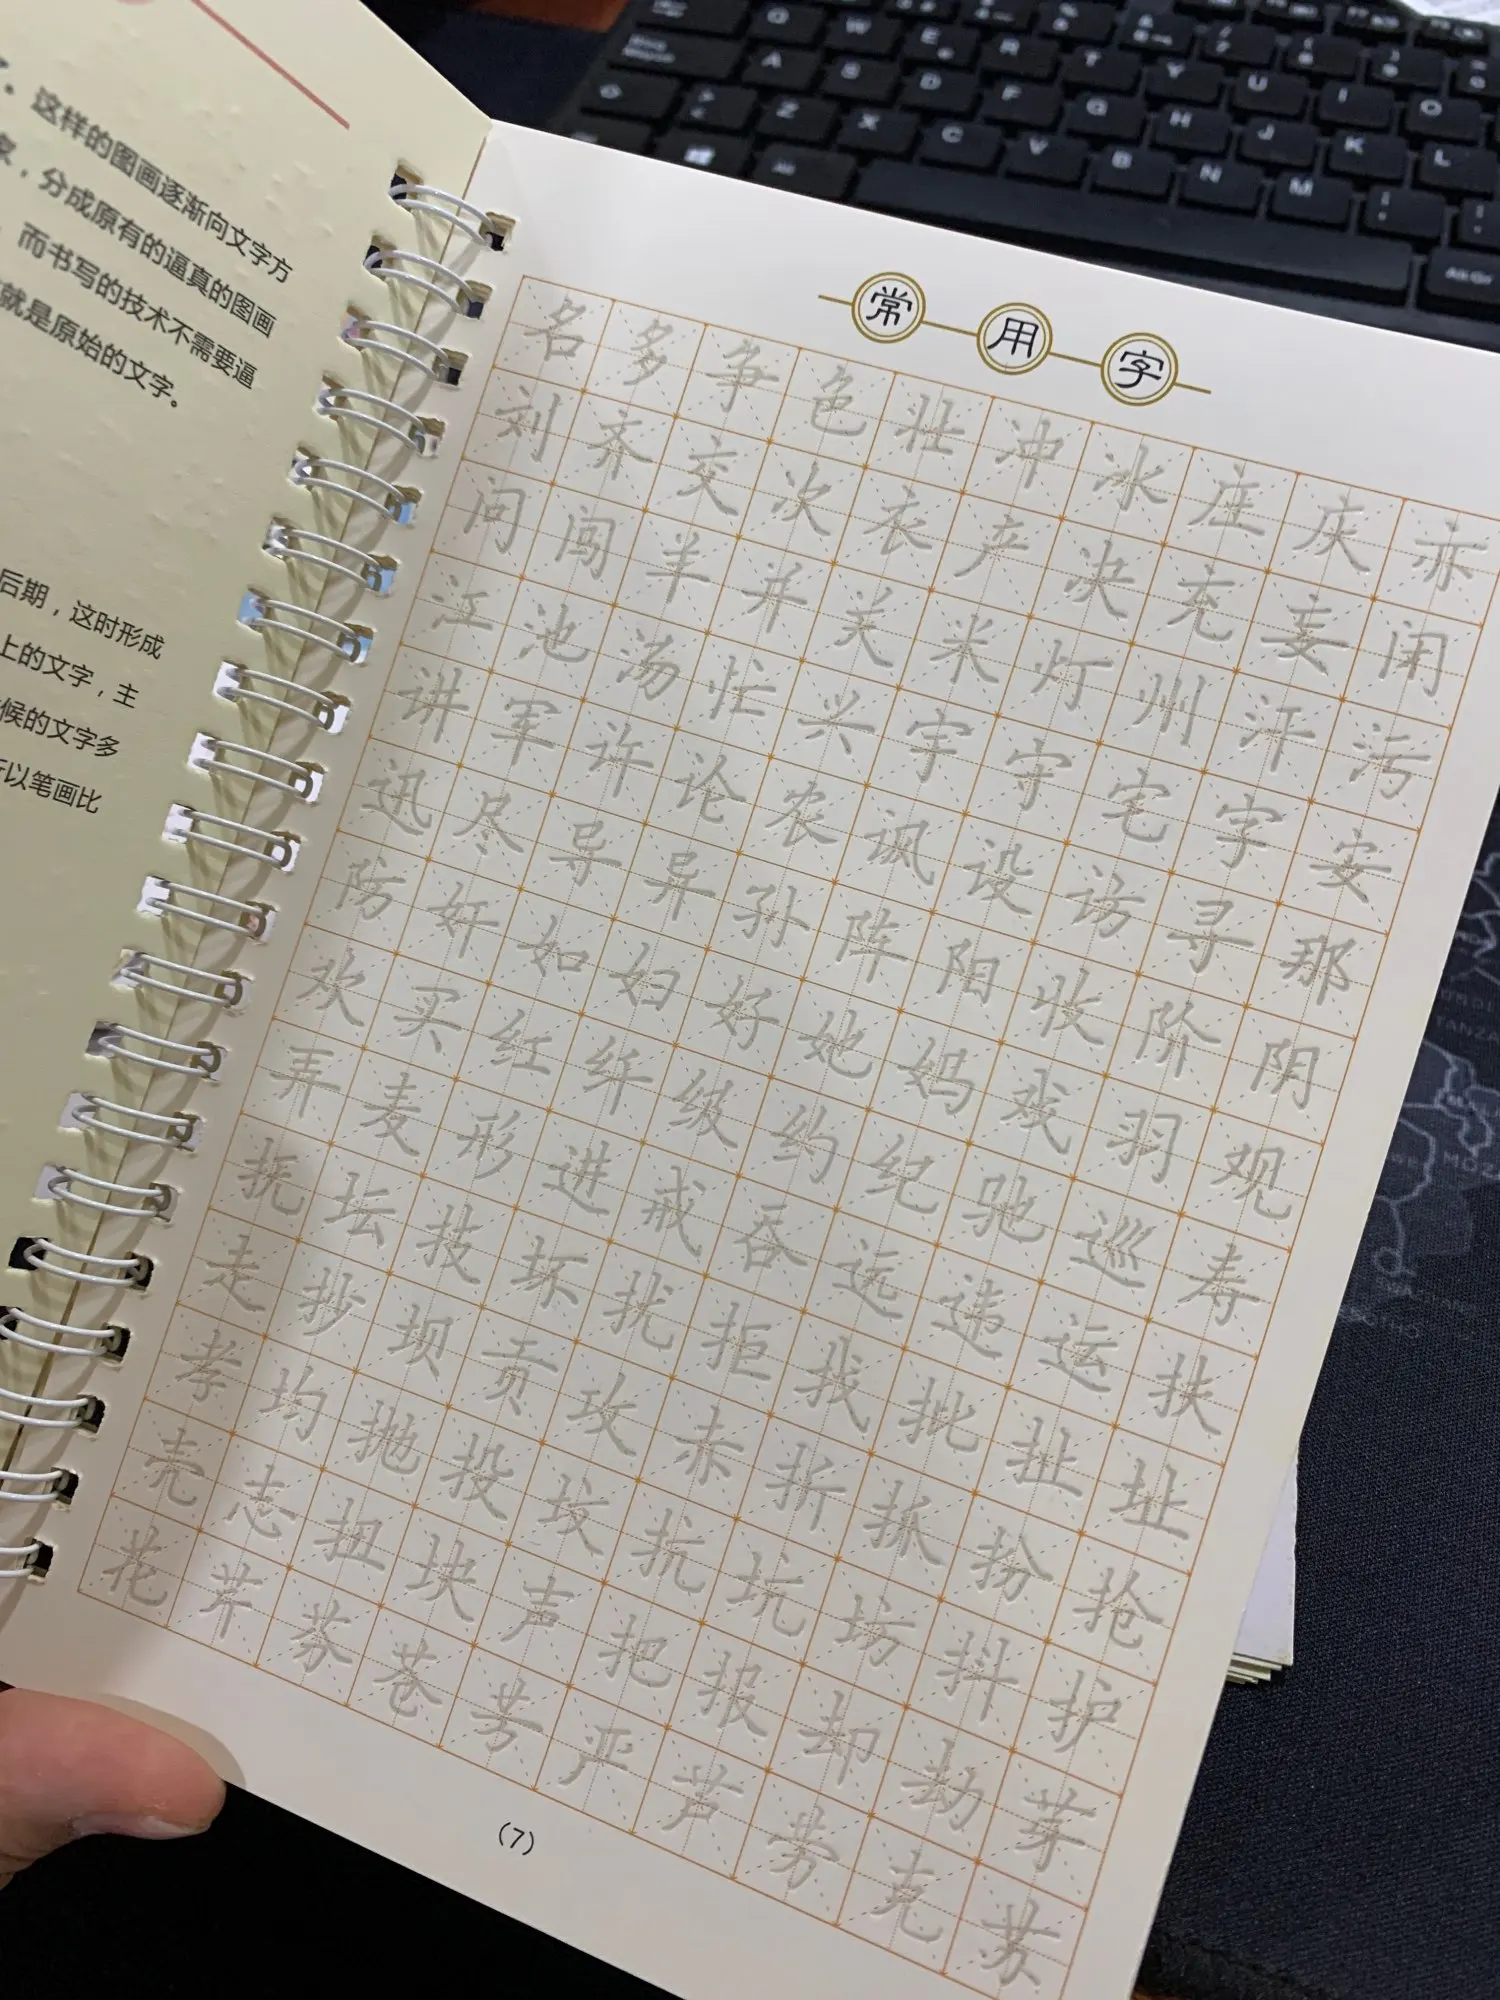 这样的图画逐渐向文字方
，分成原有的逼真的图画
而书写的技术不需要逼
就是原始的文字。
后期，这时形成
上的文字，主
候的文字多
以笔画比
常用字
名多争色壮冲冰庄庆亦
刘齐交次衣产决充妄闭
问闯羊并关米灯州汗污
江池汤忙兴宇守宅字安
讲军许论农讽设访寻那
迅尽导异孙阵阳收阶阴
防奸如妇好她妈戏羽观
欢买红纤级约纪驰巡寿
弄麦形进戒吞远违运扶
抚坛技坏扰拒找批扯址
走抄坝贡攻赤折抓扮抢
孝均抛投坟抗坑坊抖护
壳志扭块声把报却劫芽
花芹芬苍芳严芦劳克苏
(7)
Q W E R T Y U I O
A S D F G H J K L
Z X C V B N M
Alt Gr
TANZA
MOZA